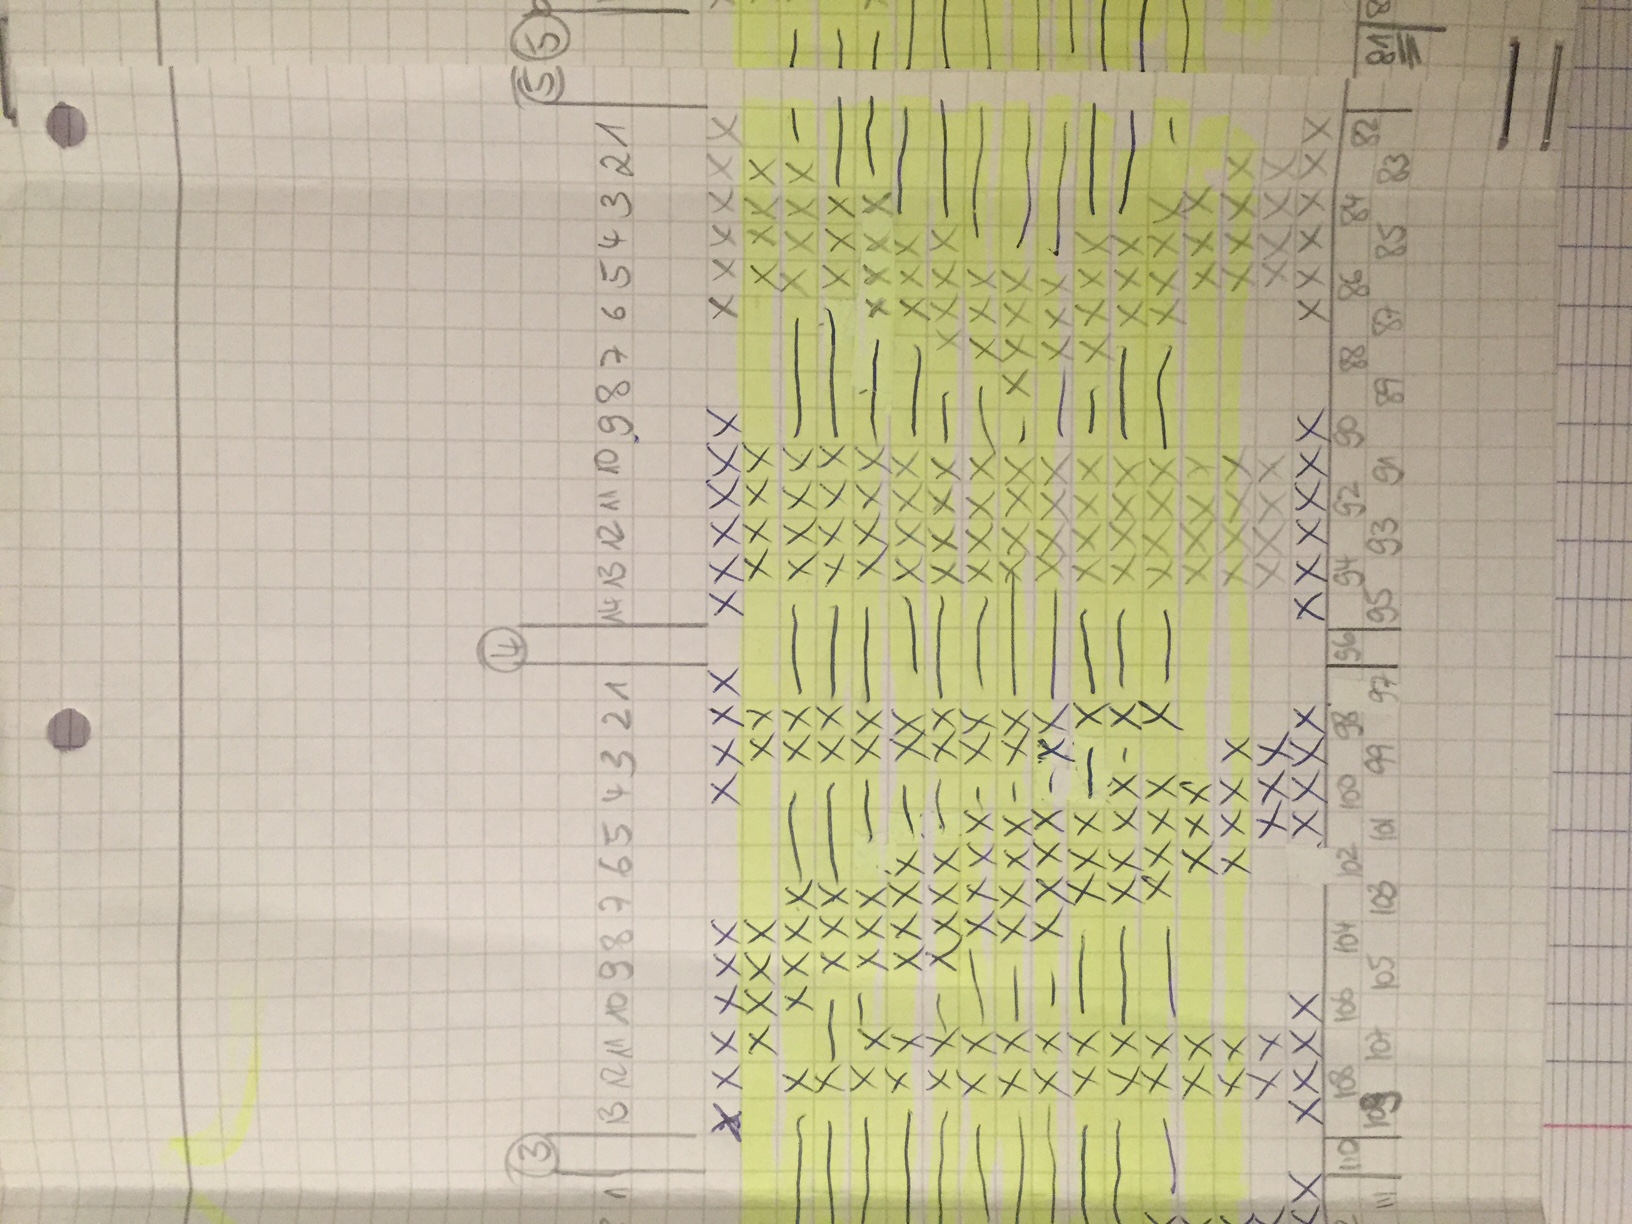 5
81
5
1 2 3 4 5 6 7 8 9 10 11 12 13 14
82 83 84 85 86 87 88 89 90 91 92 93 94 95
4
96
1 2 3 4 5 6 7 8 9 10 11 12 13
97 98 99 100 101 102 103 104 105 106 107 108 109
3
110
1
111